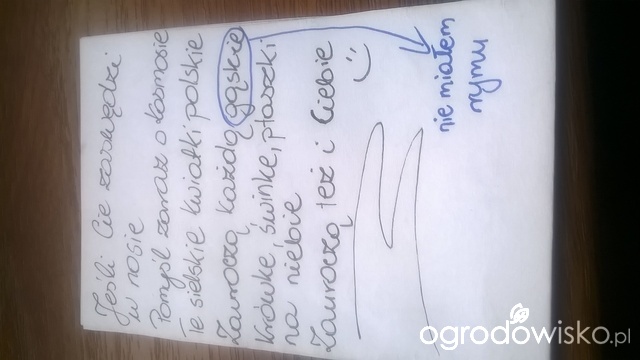 Jeśli Cię zaswędzi
w nosie
Pomyśl zaraz o kosmosie
Te sielskie kwiatki polskie
Zauroczą każdą gąskie
krówkę, świnkę, ptaszki
na niebie
Zauroczą też i Ciebie
nie miałem
rymu
ogrodowisko.pl